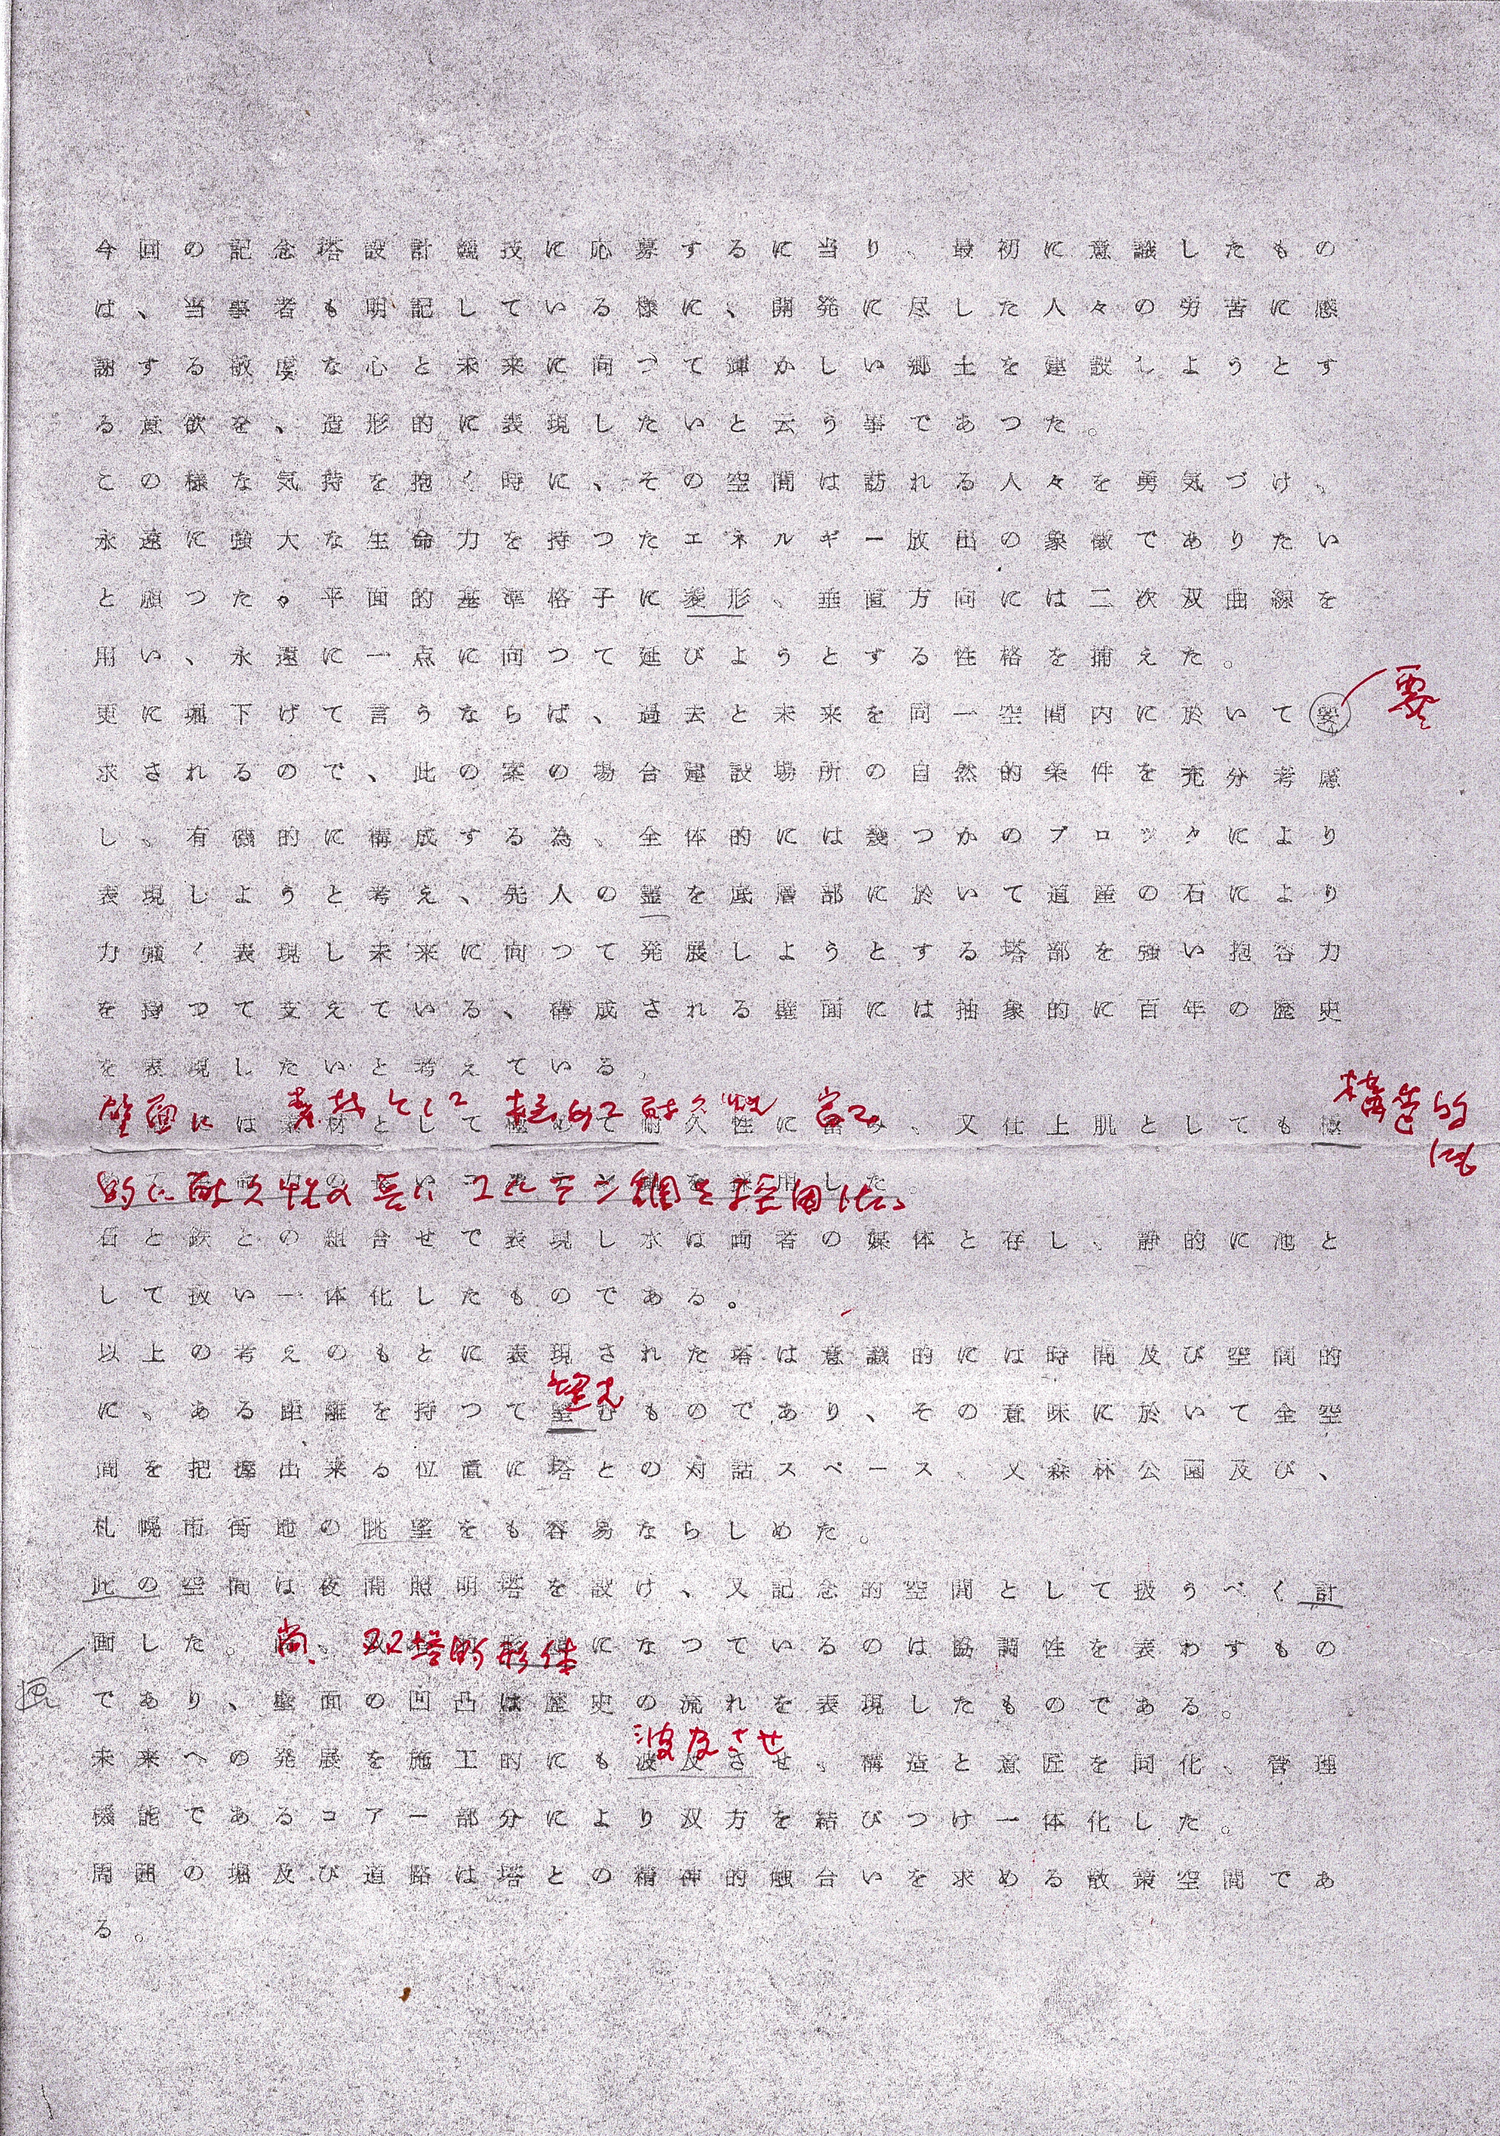 今回の記念塔設計競技に応募するに当り、最初に意識したもの
は、当事者も明記している様に、開発に尽した人々の労苦に感
謝する敬虔な心と未来に向つて輝かしい郷土を建設しようとす
る意欲を、造形的に表現したいと云う事であつた。
この様な気持を抱く時に、その空間は訪れる人々を勇気づけ、
永遠に強大な生命力を持つたエネルギー放出の象徴でありたい
と願つた。平面的基準格子に菱形、垂直方向には二次双曲線を
用い、永遠に一点に向つて延びようとする性格を捕えた。
更に堀下げて言うならば、過去と未来を同一空間内に於いて要
要
求されるので、此の案の場合建設場所の自然的条件を充分考慮
し、有機的に構成する為、全体的には幾つかのブロックにより
表現しようと考え、先人の霊を底層部に於いて道産の石により
力強く表現し未来に向つて発展しようとする塔部を強い抱容力
を持つて支えている、構成される壁面には抽象的に百年の歴史
を表現したいと考えている。
壁面に 素材として 極めて耐久性 富み 構造的
にも
は素材として極めて耐久性に富み、又仕上肌としても極
的に耐久性の長い コルテン鋼を採用した。
採用した。
石と鉄との組合せで表現し水は両者の媒体と存し、静的に池と
して扱い一体化したものである。
以上の考えのもとに表現された塔は意識的には時間及び空間的
望む
に、ある距離を持つて望むものであり、その意味に於いて全空
間を把握出来る位置に塔との対話スペース、又森林公園及び、
札幌市街地の眺望をも容易ならしめた。
此の空間は夜間照明塔を設け、又記念的空間として扱うべく計
画した。尚、双塔的形体になつているのは協調性を表わすもの
画
であり、壁面の凹凸は歴史の流れを表現したものである。
波及させ
未来への発展を施工的にも波及させ、構造と意匠を同化、管理
機能であるコアー部分により双方を結びつけ一体化した。
周囲の堀及び道路は塔との精神的触合いを求める散策空間であ
る。